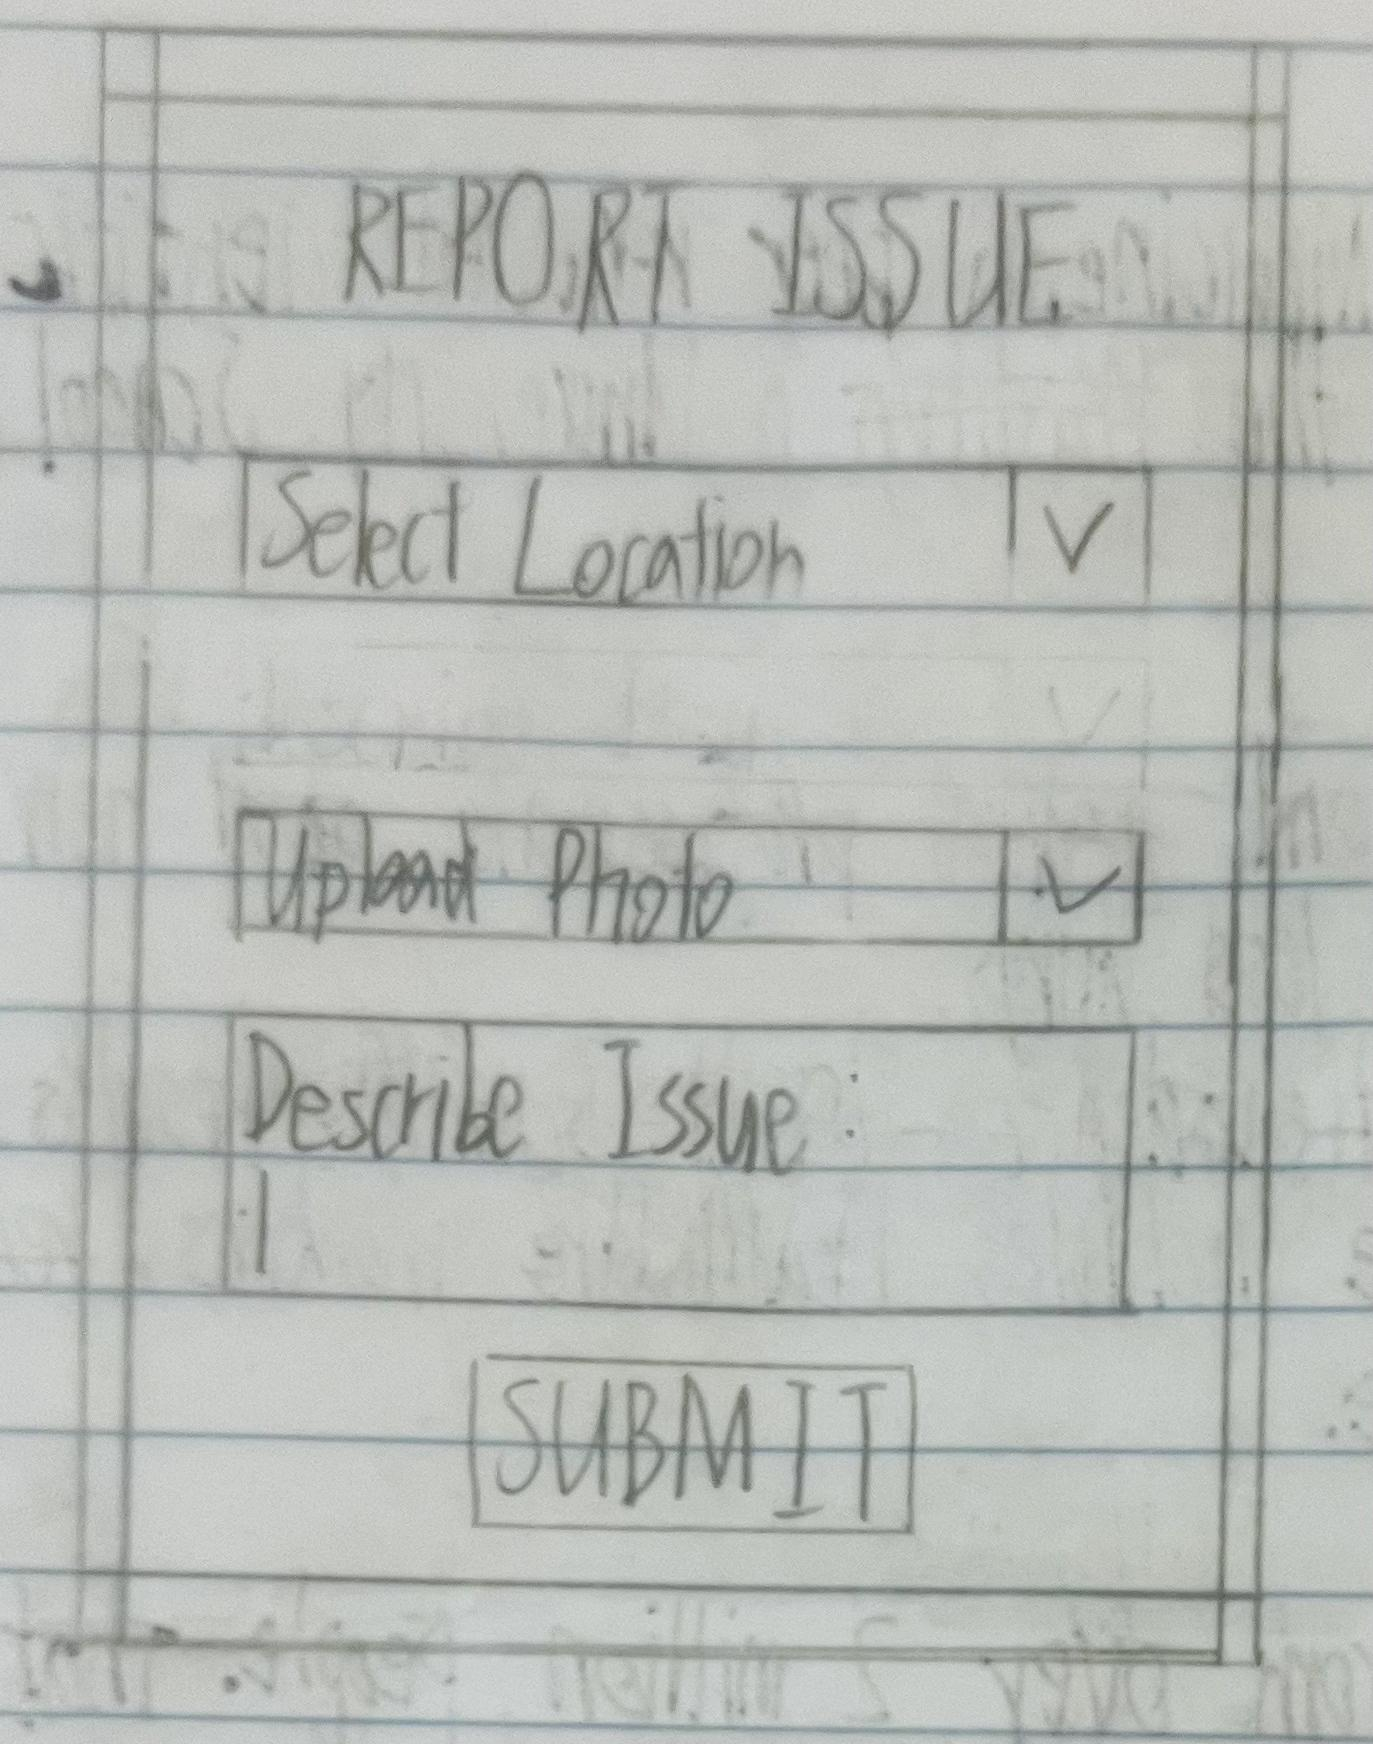 REPORT ISSUE
Select Location
Upload Photo
Describe Issue:
SUBMIT